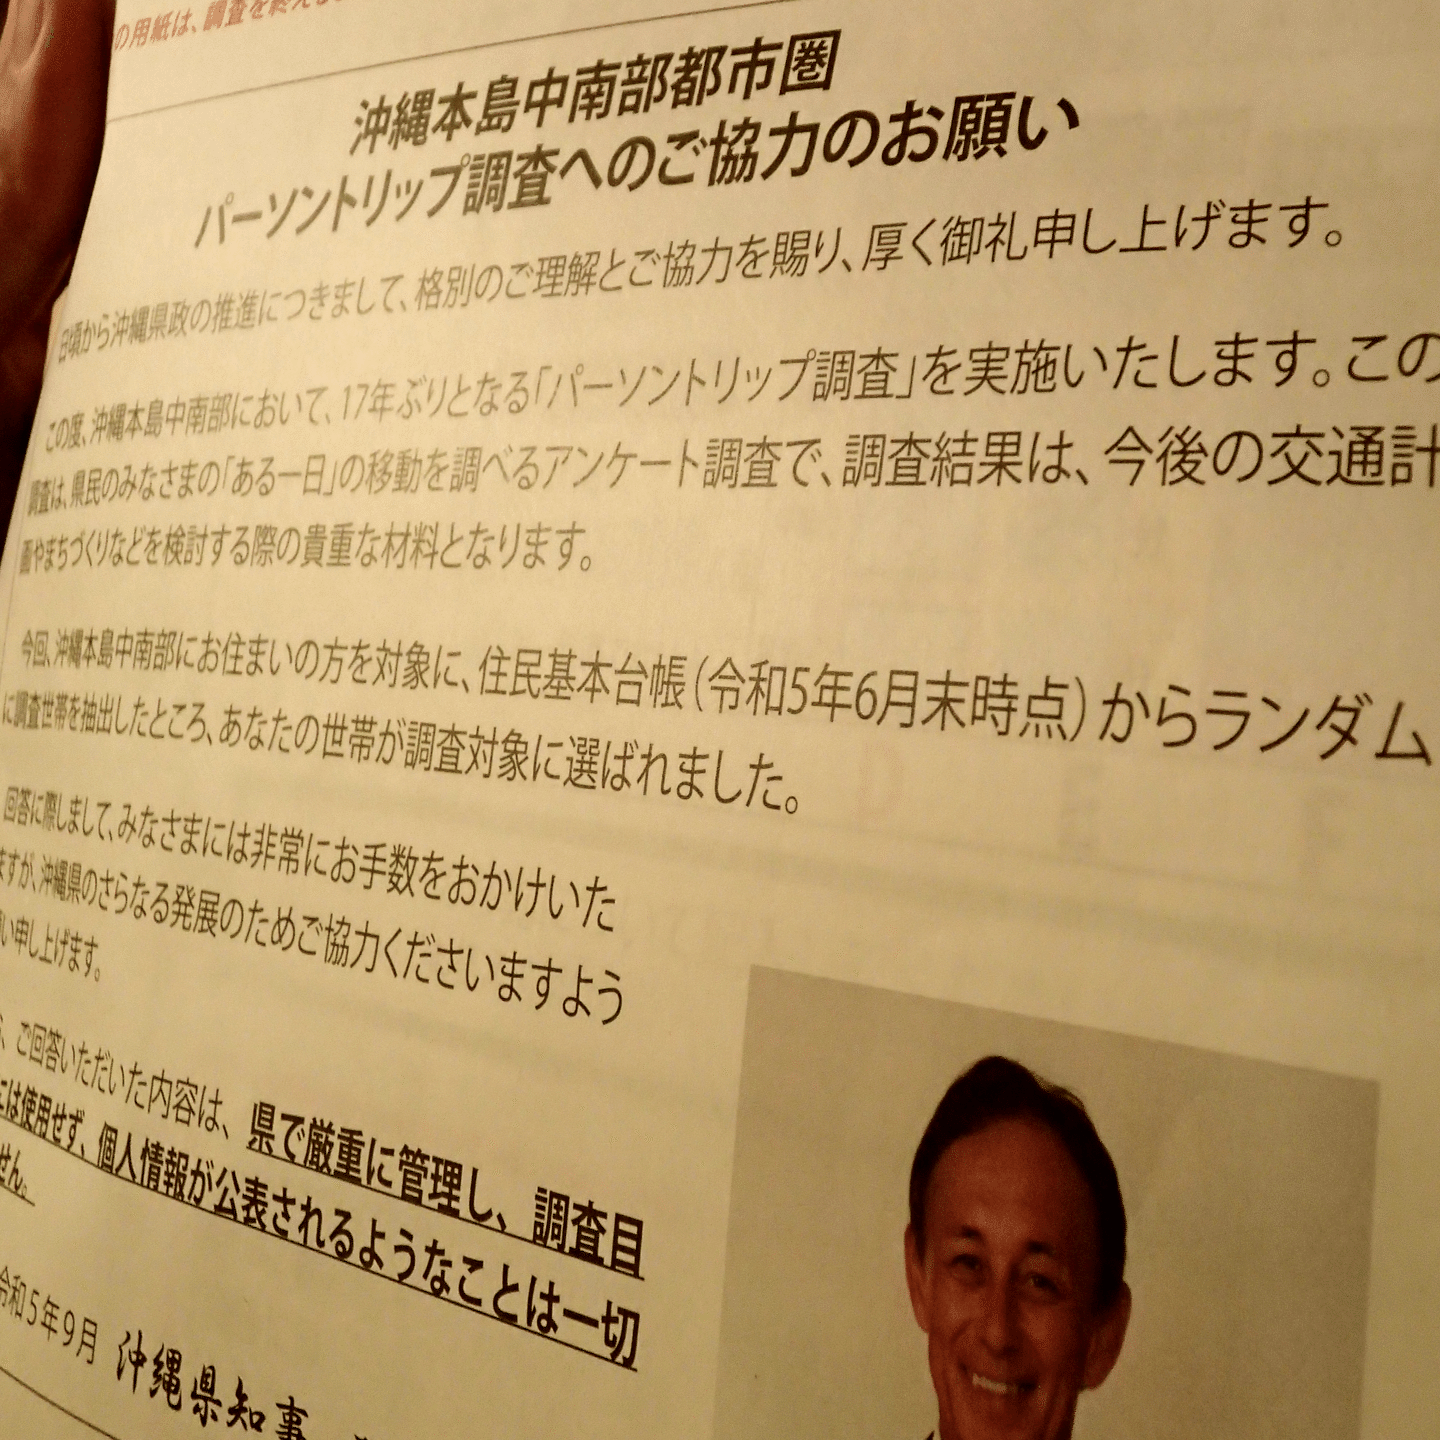 の用紙は、調査を終え
沖縄本島中南部都市圏
パーソントリップ調査へのご協力のお願い
日頃から沖縄県政の推進につきまして、格別のご理解とご協力を賜り、厚く御礼申し上げます。
この度、沖縄本島中南部において、17年ぶりとなる「パーソントリップ調査」を実施いたします。この
調査は、県民のみなさまの「ある一日」の移動を調べるアンケート調査で、調査結果は、今後の交通計
画やまちづくりなどを検討する際の貴重な材料となります。
今回、沖縄本島中南部にお住まいの方を対象に、住民基本台帳（令和5年6月末時点）からランダム
に調査世帯を抽出したところ、あなたの世帯が調査対象に選ばれました。
回答に際しまして、みなさまには非常にお手数をおかけいた
ますが、沖縄県のさらなる発展のためご協力くださいますよう
い申し上げます。
、ご回答いただいた内容は、県で厳重に管理し、調査目
には使用せず、個人情報が公表されるようなことは一切
せん。
令和5年9月 沖縄県知事